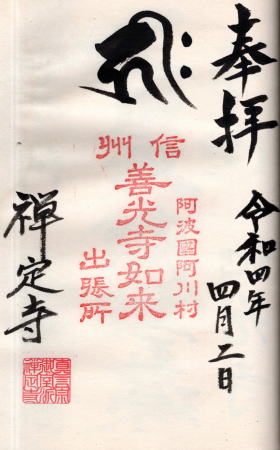 奉拝
令和四年
四月二日
阿波國阿川村
信州
善光寺如来
出張所
禅定寺